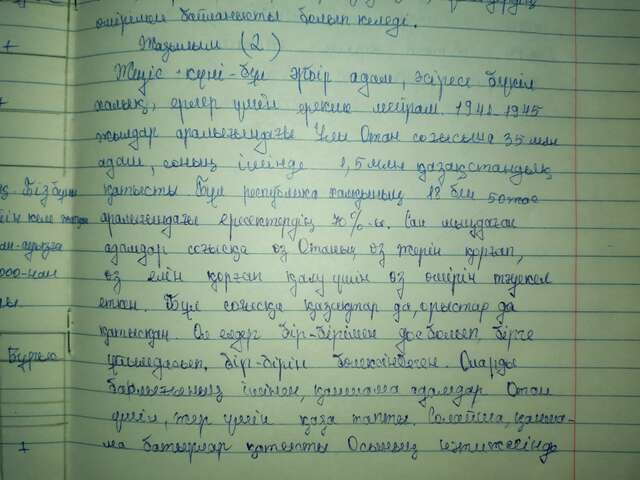 өмірімен байланысты болып келеді.
Жазылым (2)
Жеңіс күні - бұл әрбір адам, әсіресе бүкіл
халық, ерлер үшін ерекше мейрам. 1941-1945
жылдар аралығындағы Ұлы Отан соғысына 35 млн
адам, соның ішінде 1,5 млн қазақстандық
қатысты. Бұл республика халқының 18 бен 50 жас
аралығындағы ересектердің 70%-ы. Сан мыңдаған
адамдар соғысқа өз Отанын, өз жерін қорғап,
өз елін қорған қалу үшін өз өмірін тәуекел
еткен. Бұл соғысқа қазақтар да, орыстар да
қатысқан. Ол елдер бір-бірімен дос болып, бірге
ұйымдасып, бір-бірін бөлексінбеген. Олардың
барлығының ішінен, қаншама адамдар Отан
үшін, жер үшін қаза тапты. Солайша, қанша-
ма батырлар қатысты. Осының нәтижесінде
+
Біз бұған
кеп
000-нан
Бұғаз
+